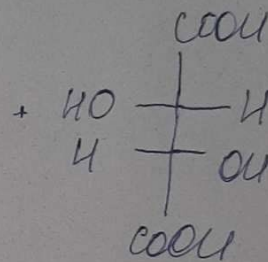 COOH
+ HO H
H OH
COOH